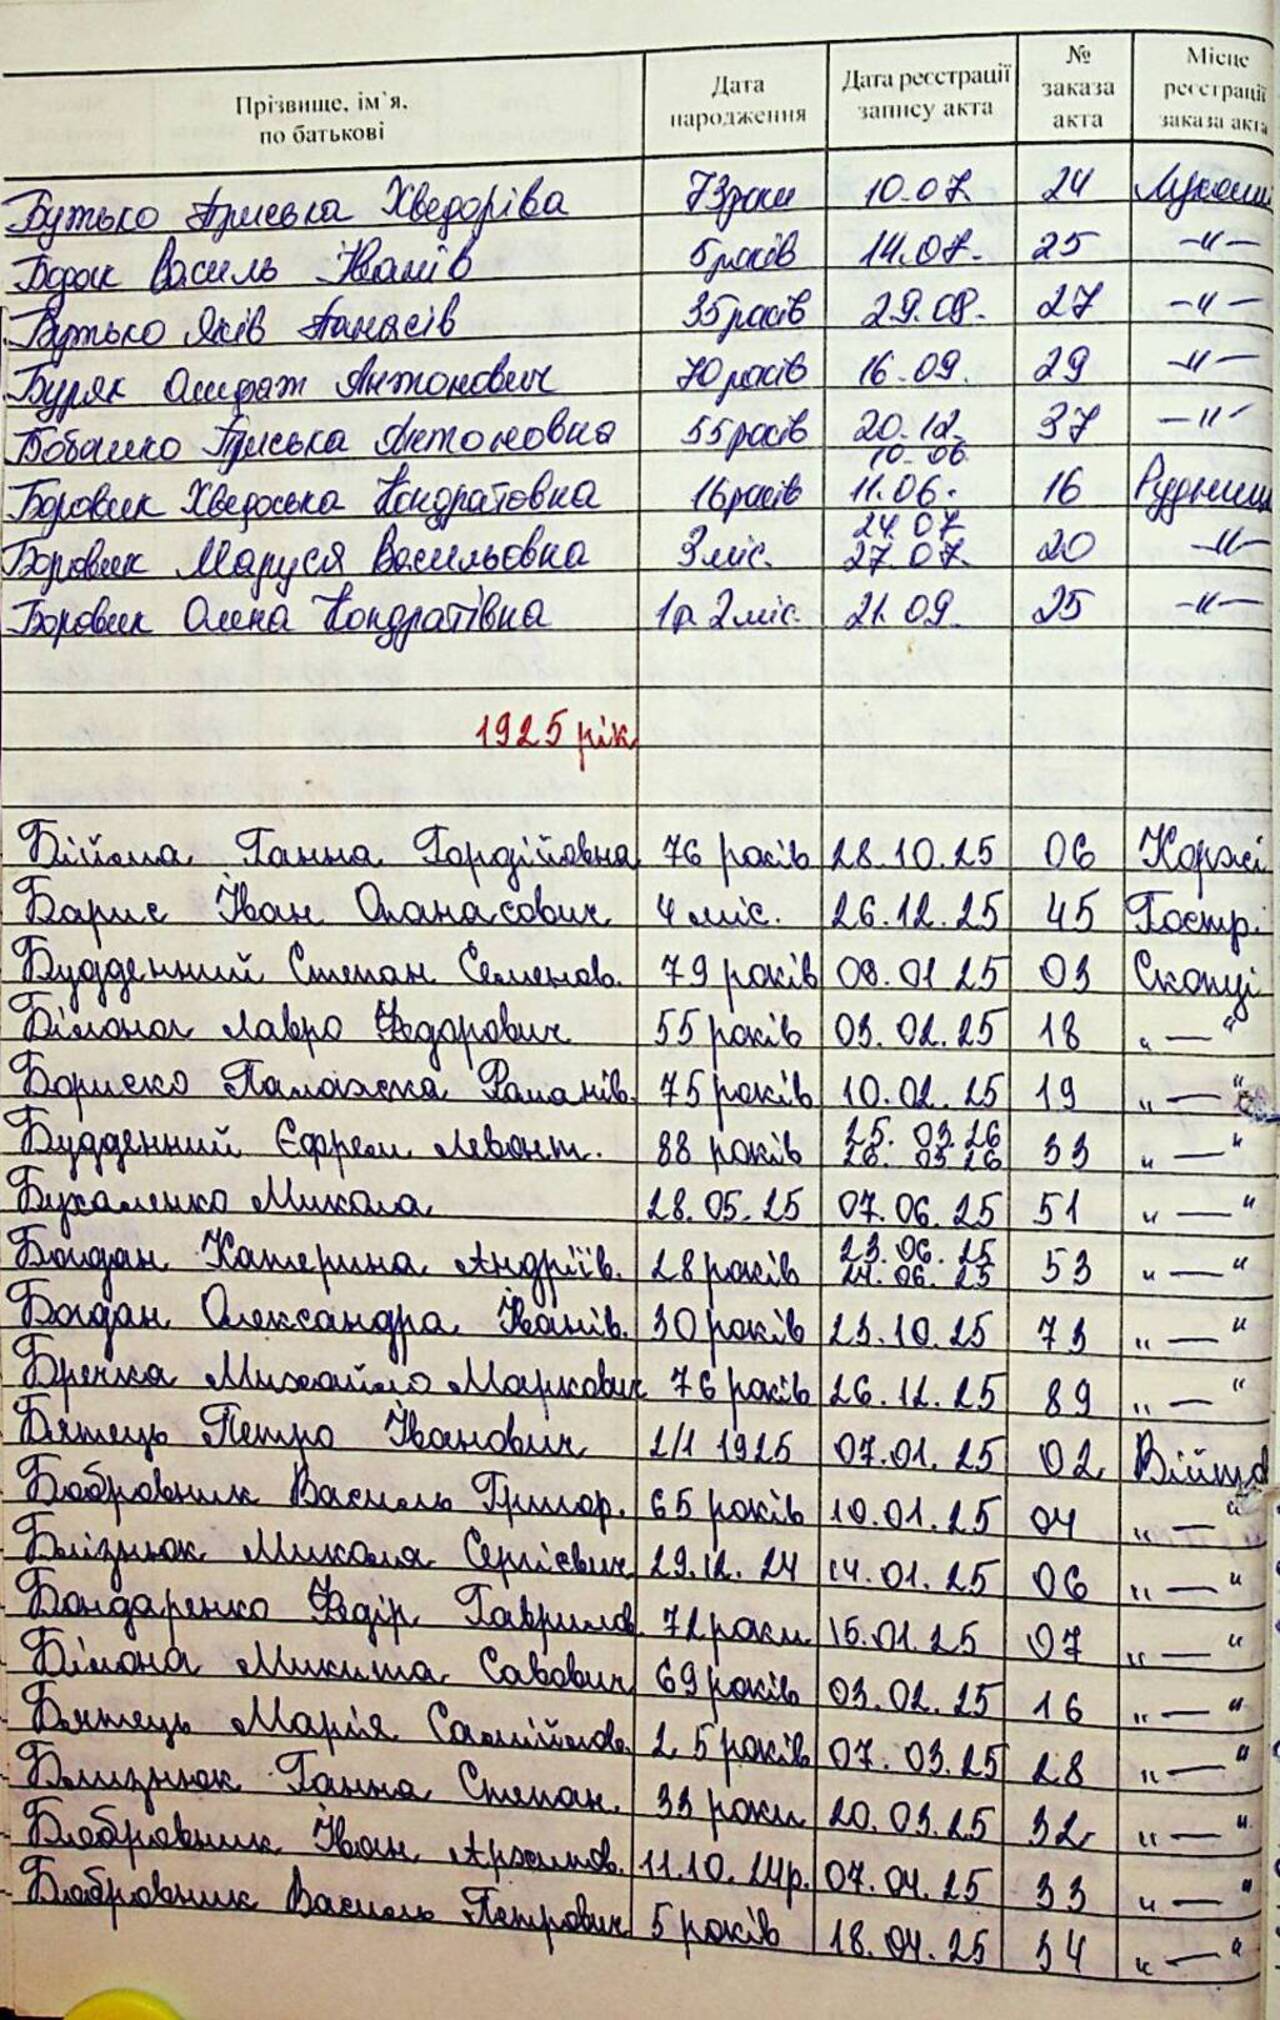 Прізвище, ім`я, по батькові | Дата народження | Дата реєстрації запису акта | № заказа акта | Місце реєстрації заказа акта
Бутько Пріська Хведоріва 73роки 10.07. 24 Лукаші
Василь Іванів 5років 14.07. 25 –"–
Бутько Яків Панасів 35років 29.08. 27 –"–
Буряк Антонович 70років 16.09. 29 –"–
Бобашко Пріська Антоновна 55років 20.12. 37 –"–
10.06
Боровик Хведоська Кондратовна 16років 11.06. 16
24.07
Боровик Маруся Васильовна 3 міс. 27.07. 20 –"–
Боровик Олена Кондратівна 1р. 2 міс. 21.09. 25 –"–
1925 рік
Бійма Ганна Гордіївна 76 років 28.10.25 06 Коржі
Барис Іван Опанасович 4 міс. 26.12.25 45 Гостр.
Будденний Степан Семенов. 79 років 08.01.25 03 Скопці
Білона Лавро Федорович 55 років 03.02.25 18 „—"
Бориско Палажка Романів. 75 років 10.02.25 19 „—"
25.03.26
Будденний Єфрем Левонт. 88 років 26.03.26 33 „—"
Бухаленко Микола 28.05.25 07.06.25 51 „—"
23.06.25
Богдан Катерина Андріїв. 28 років 24.06.25 53 „—"
Богдан Олександра Іванів. 30 років 23.10.25 73 „—"
Бречка Михайло Маркович 76 років 26.12.25 89 „—"
Бятець Петро Іванович 2/1 1925 07.01.25 02 Війтов
Бобровник Василь Григор. 65 років 10.01.25 04 „—"
Блізнюк Микола Сергієвич 29.12.24 14.01.25 06 „—"
Бондаренко Федір Гаврилов. 72 роки 15.01.25 07 „—"
Білона Микита Савович 69 років 03.02.25 16 „—"
Бятець Марія Самійлов. 2,5 років 07.03.25 28 „—"
Близнюк Ганна Степан. 33 роки 20.03.25 32 „—"
Бобровник Іван Архипов. 11.10.24р. 07.04.25 33 „—"
Бобровник Василь Петрович 5 років 18.04.25 34 „—"